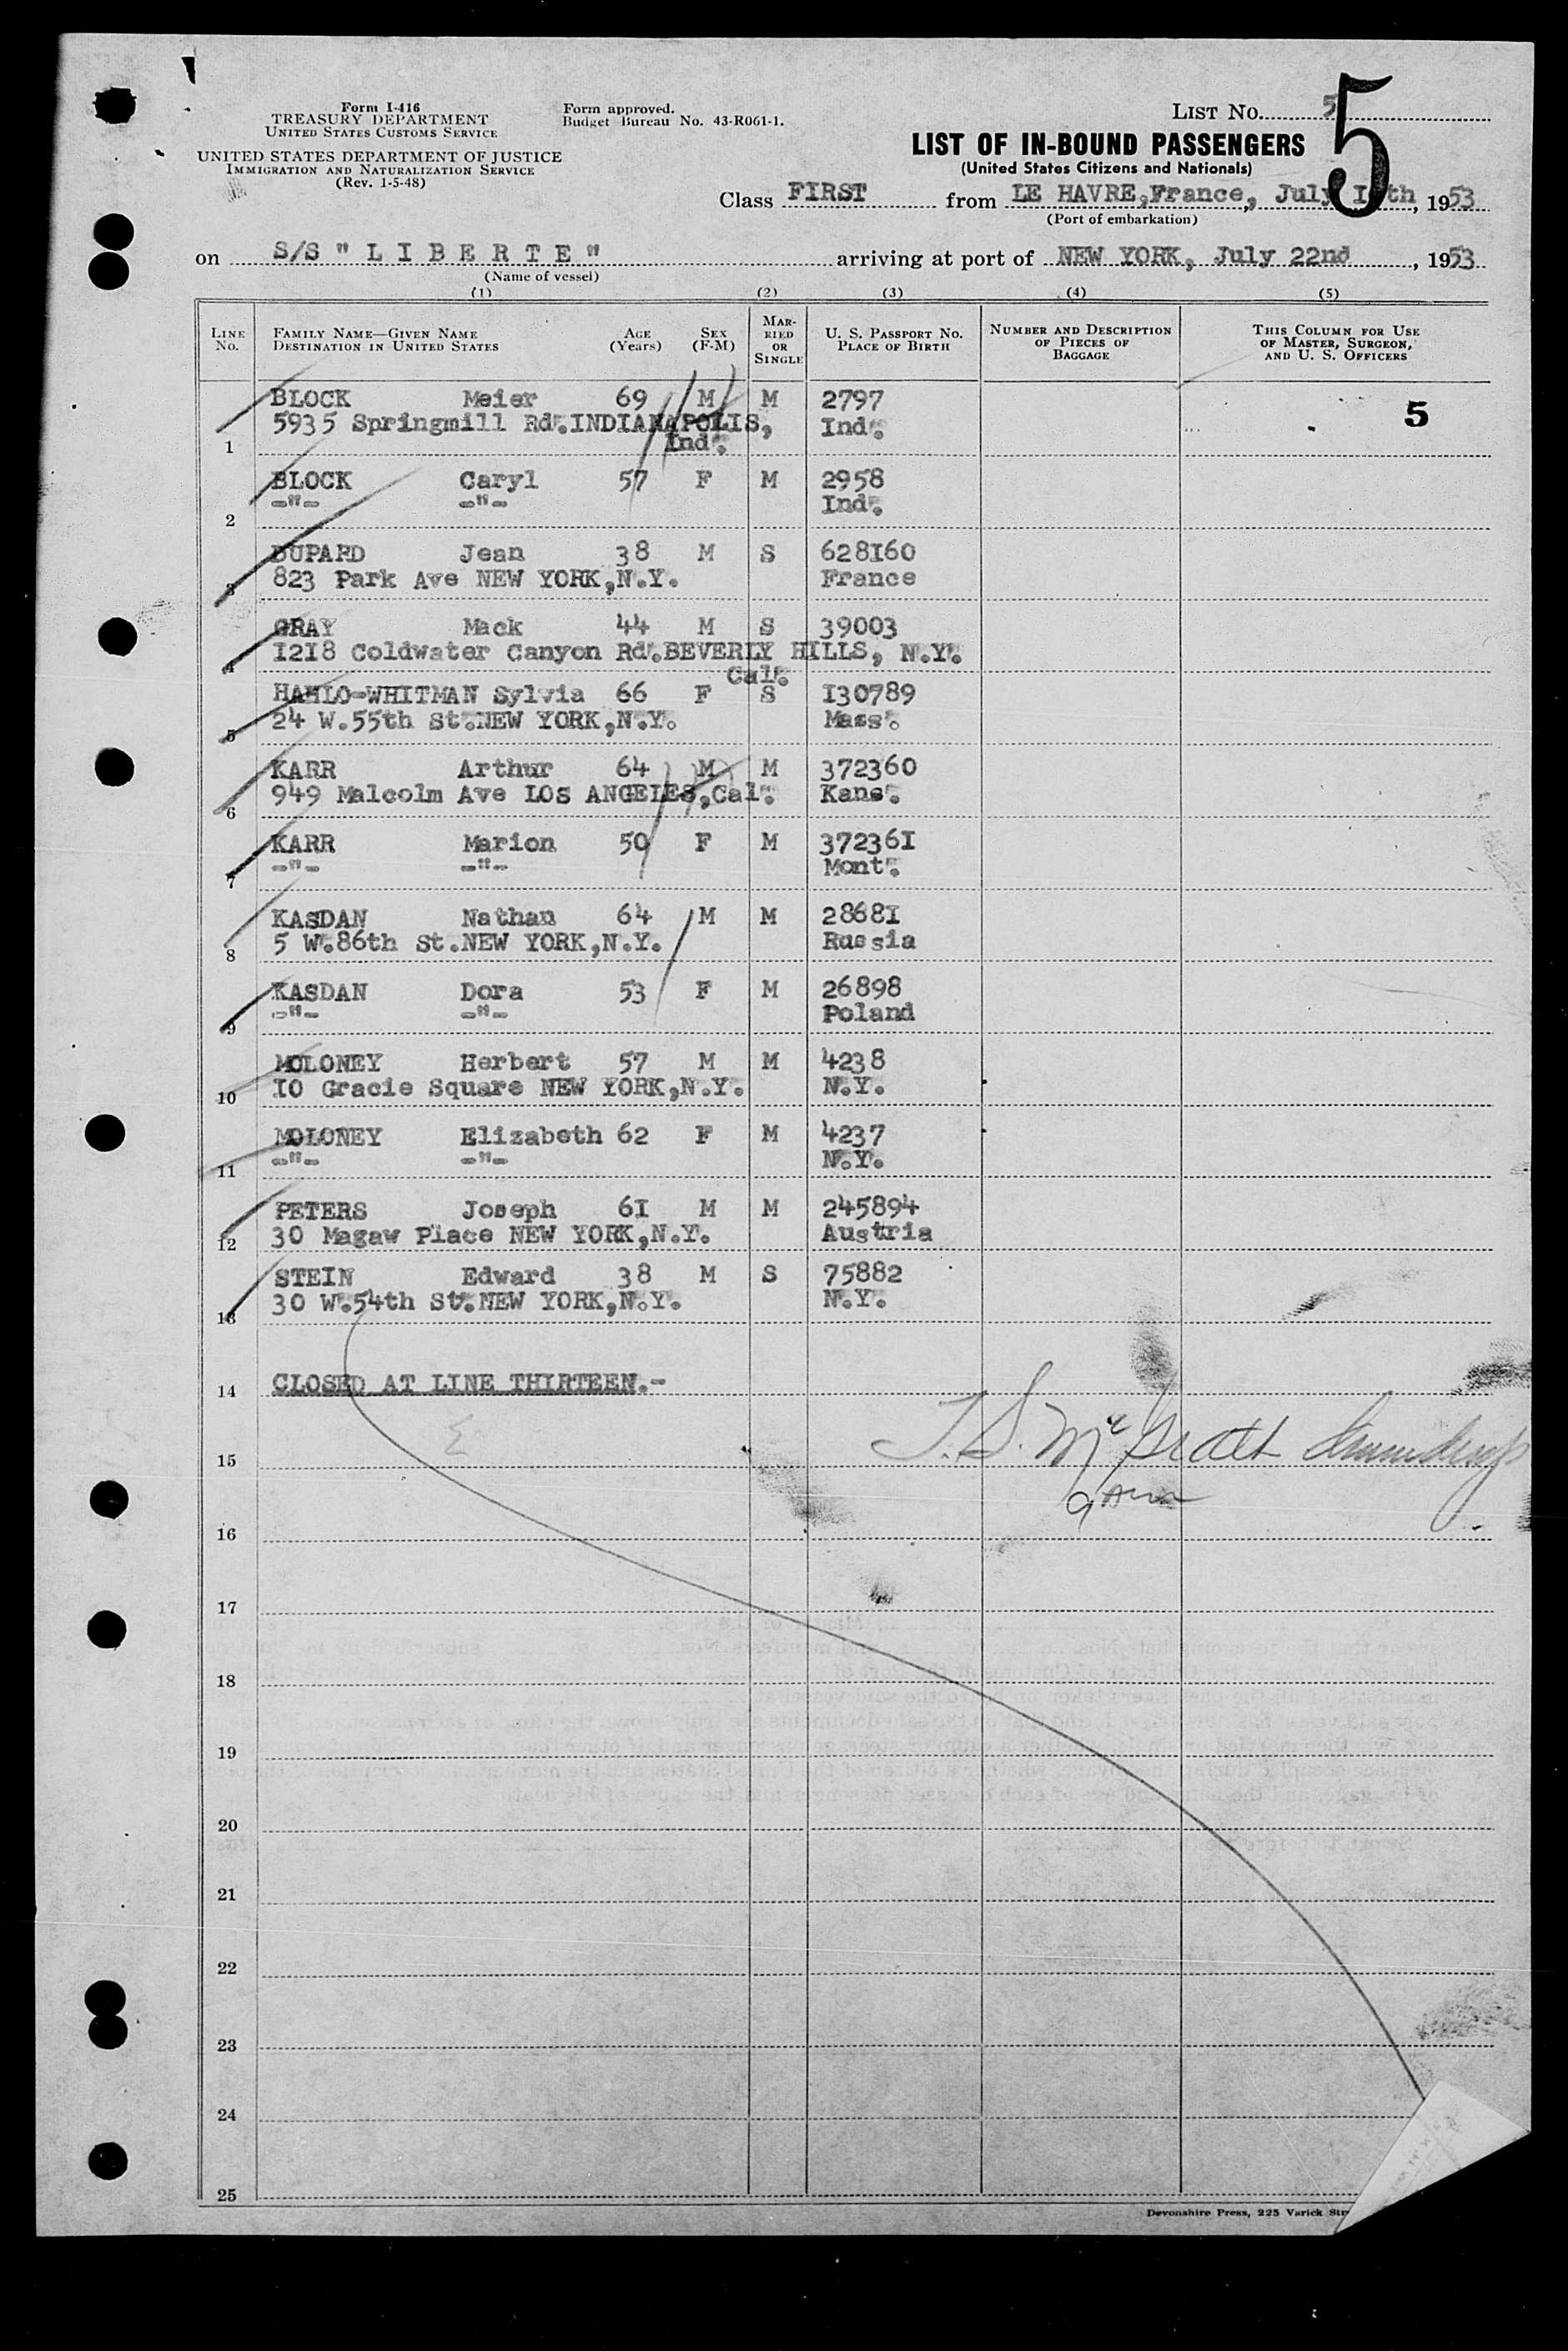 Form I-416
TREASURY DEPARTMENT
UNITED STATES CUSTOMS SERVICE
UNITED STATES DEPARTMENT OF JUSTICE
IMMIGRATION AND NATURALIZATION SERVICE
(Rev. 1-5-48)
Form approved.
Budget Bureau No. 43-R061-1.
LIST No. 5
5
LIST OF IN-BOUND PASSENGERS
(United States Citizens and Nationals)
Class FIRST from LE HAVRE,France, July th, 1953
(Port of embarkation)
on S/S " L I B E R T E " arriving at port of NEW YORK, July 22nd, 1953
(Name of vessel)
(1) (2) (3) (4) (5)
LINE No. FAMILY NAME—GIVEN NAME DESTINATION IN UNITED STATES AGE (Years) SEX (F-M) MARRIED OR SINGLE U. S. PASSPORT NO. PLACE OF BIRTH NUMBER AND DESCRIPTION OF PIECES OF BAGGAGE THIS COLUMN FOR USE OF MASTER, SURGEON, AND U. S. OFFICERS
BLOCK Meier 69 M M 2797 5
1 5935 Springmill Rd.INDIANAPOLIS, Ind. Ind.
BLOCK Caryl 57 F M 2958
2 -"- -"- Ind.
DUPARD Jean 38 M S 628160
3 823 Park Ave NEW YORK,N.Y. France
GRAY Mack 44 M S 39003
4 1218 Coldwater Canyon Rd.BEVERLY HILLS, N.Y.
Cal.
HAHLO-WHITMAN Sylvia 66 F S 130789
5 24 W.55th St.NEW YORK,N.Y. Mass.
KARR Arthur 64 M M 372360
6 949 Malcolm Ave LOS ANGELES,Cal. Kans.
KARR Marion 50 F M 372361
7 -"- -"- Mont.
KASDAN Nathan 64 M M 28681
8 5 W.86th St.NEW YORK,N.Y. Russia
KASDAN Dora 53 F M 26898
9 -"- -"- Poland
MOLONEY Herbert 57 M M 4238
10 10 Gracie Square NEW YORK,N.Y. N.Y.
MOLONEY Elizabeth 62 F M 4237
11 -"- -"- N.Y.
PETERS Joseph 61 M M 245894
12 30 Magaw Place NEW YORK,N.Y. Austria
STEIN Edward 38 M S 75882
13 30 W.54th St.NEW YORK,N.Y. N.Y.
14 CLOSED AT LINE THIRTEEN.-
T. S. McGrath
15
16
17
18
19
20
21
22
23
24
25
Devonshire Press, 225 Varick